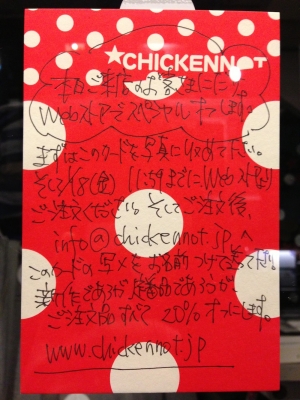 ★CHICKENNOT
本日ご来店のお客様にだけ
Webストアでスペシャルオファーします。
まずはこのカードを写真に収めて下さい。
そして1/8(金) 11:59までにWebストアより
ご注文ください。そしてご注文後、
info@chickennot.jp へ
このカードの写メをお名前つけて送って下さい。
新作であろうが定番品であろうが
ご注文品すべて 20%オフにします。
www.chickennot.jp